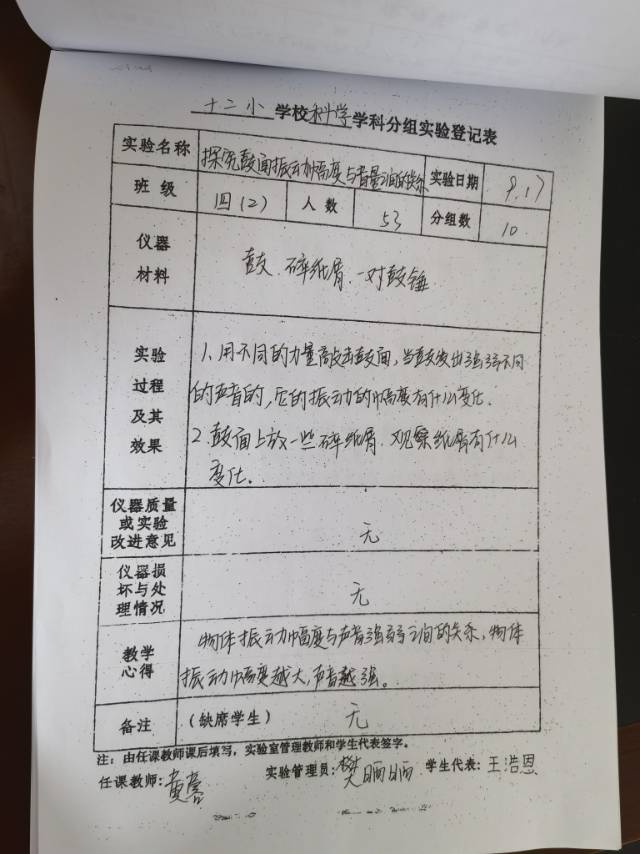 十二小学校科学学科分组实验登记表
实验名称 探究鼓面振动幅度与音量之间的关系 实验日期 9.17
班级 四(2) 人数 53 分组数 10
仪器材料 鼓、碎纸屑、一对鼓锤
实验过程及其效果
1、用不同的力量敲击鼓面,当鼓发出强弱不同
的声音的,它的振动的幅度有什么变化.
2.鼓面上放一些碎纸屑.观察纸屑有什么
变化.
仪器质量或实验改进意见 无
仪器损坏与处理情况 无
教学心得
物体振动幅度与声音强弱之间的关系,物体
振动幅度越大,声音越强。
备注 (缺席学生) 无
注:由任课教师课后填写,实验室管理教师和学生代表签字。
任课教师:黄 实验管理员:樊丽娟 学生代表:王浩恩